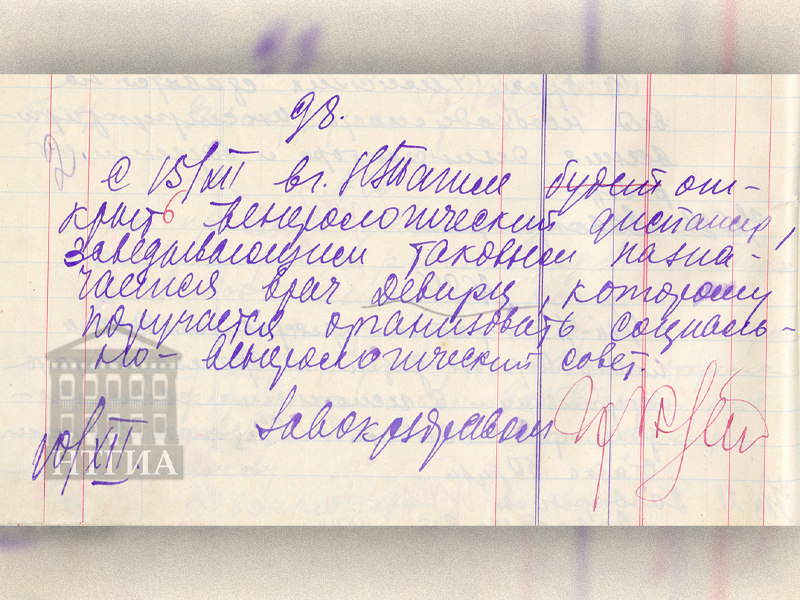 98.
С 15/XII в г. Н Тагиле будет от-
крыть венерологический диспансер,
заведывающим таковым назна-
чается врач Девирц, которому
поручается организовать социаль-
но-венерологический совет.
Завокрздравом
10/XII.
НТГИА